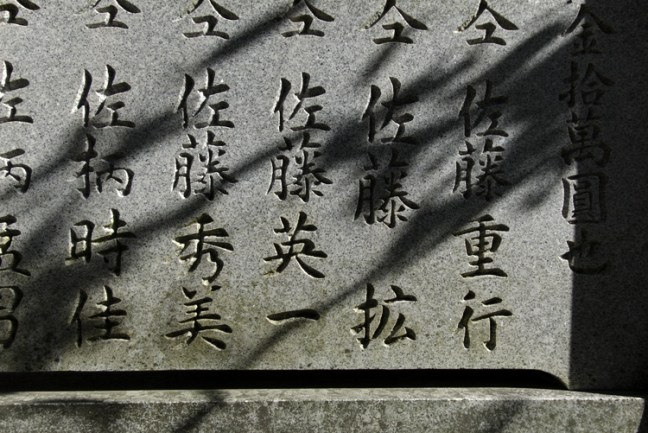 金拾萬圓也
仝 佐藤重行
仝 佐藤 拡
仝 佐藤英一
仝 佐藤秀美
仝 佐柄時佳
佐柄孟昌